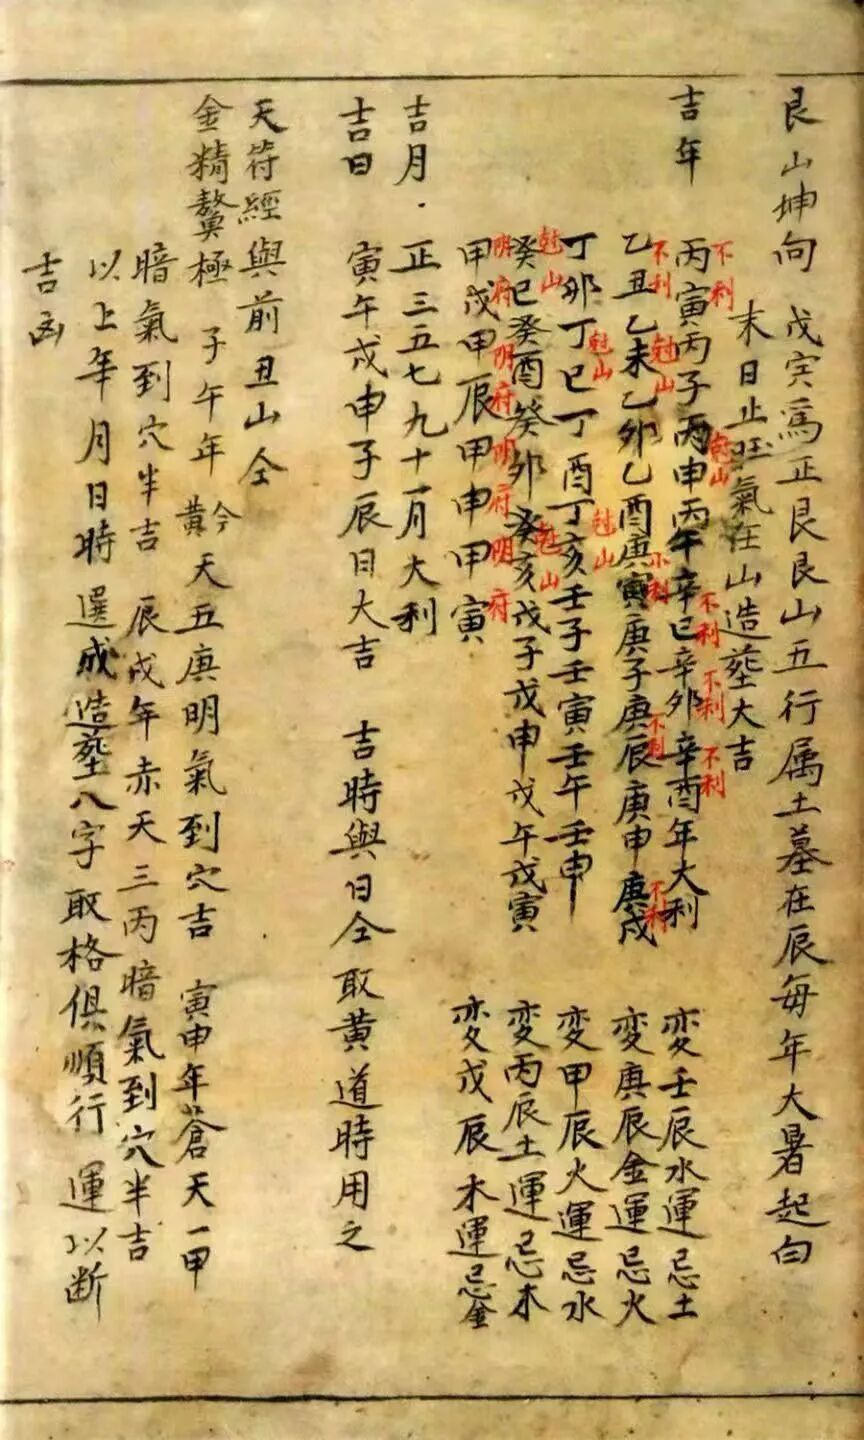 艮山坤向 戊寅爲正艮艮山五行属土墓在辰每年大暑起白
末日止旺氣在山造塟大吉
吉年
丙寅丙子丙申丙午辛巳辛卯辛酉年大利 変壬辰水運忌土
不利 尅山 不利 不利 不利
乙丑乙未乙卯乙酉庚寅庚子庚辰庚申庚戌 変庚辰金運忌火
不利 尅山 不利 不利 不利
丁卯丁巳丁酉丁亥壬子壬寅壬午壬申 変甲辰火運忌水
尅山 尅山
癸巳癸酉癸卯癸亥戊子戊申戊午戊寅 変丙辰土運忌木
尅山 尅山
甲戌甲辰甲申甲寅 変戊辰木運忌金
明府 明府 明府 明府
吉月·正三五七九十一月大利
吉日 寅午戌申子辰日大吉 吉時與日仝取黄道時用之
天符經與前丑山仝
金精鰲極 子午年 黅天五庚明氣到穴吉 寅申年蒼天一甲
暗氣到穴半吉 辰戌年赤天三丙暗氣到穴半吉
以上年月日時選成造塟八字取格俱順行 運以断
吉凶